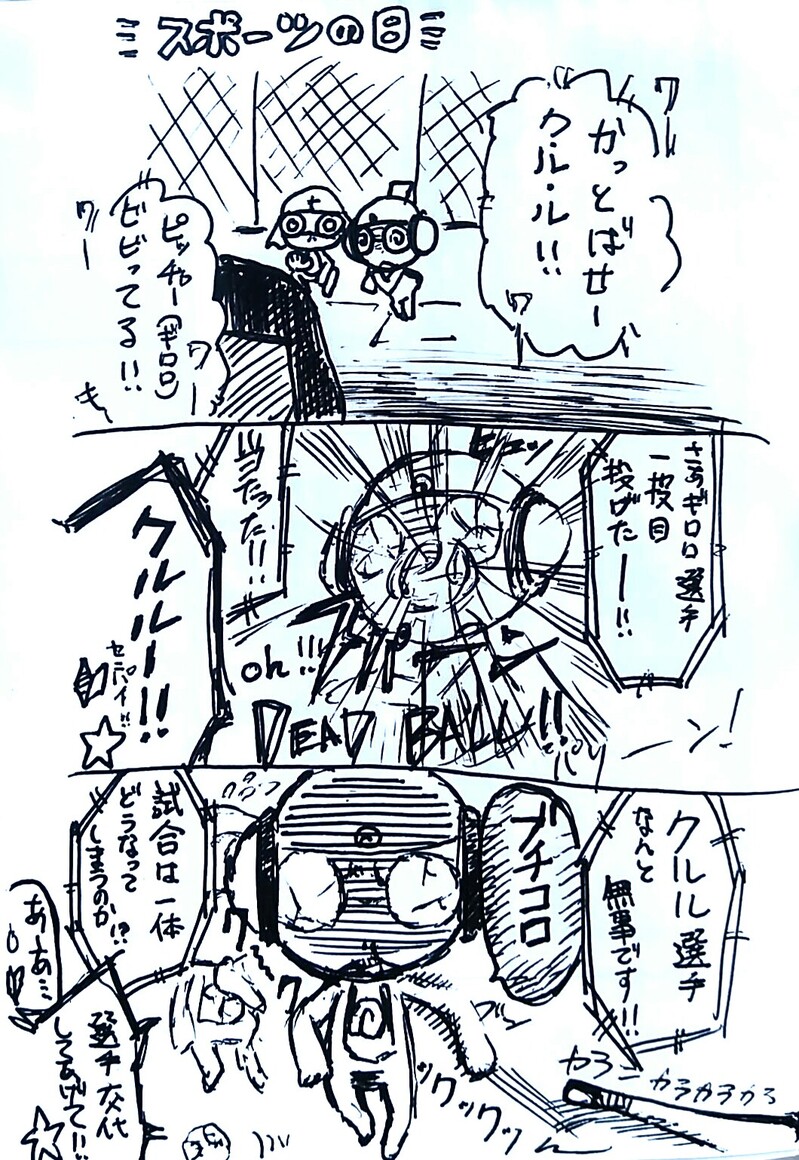 スポーツの日
かっとばせー
ク・ル・ル!!
ワー
ワー
ピッチャー(ギロロ)
ビビってる!!
ワー
さあギロロ選手
一投目
投げたー!!
ヒュッ
当たった!!
oh!!!
DEAD BALL!!
クルルー!!
センパイ!!
クルル選手
なんと
無事です!!
ブチコロ
試合は一体
どうなって
しまうのか!?
あーあ…
選手交代
してあげて!!
クックックッ
カラーン
カラカラカラ